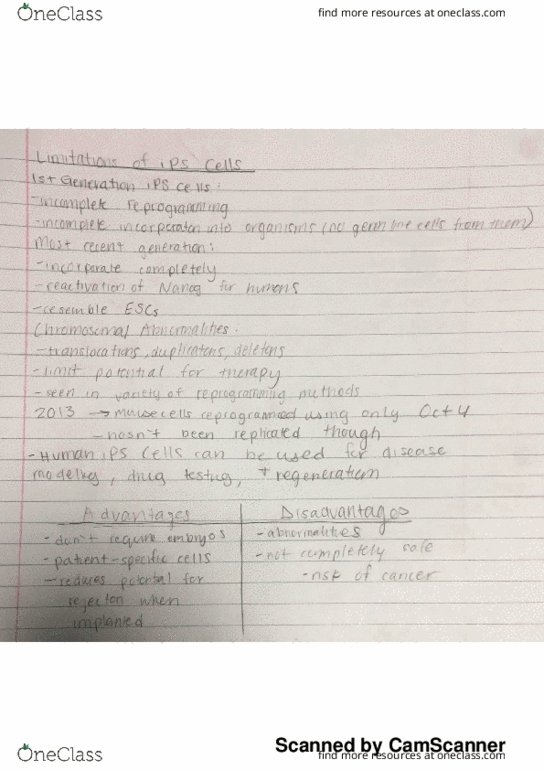 OneClass
find more resources at oneclass.com
Limitations of iPS Cells
1st Generation iPS cells:
-incomplete reprogramming
-incomplete incorporation into organisms (no germ line cells from them)
Most recent generation:
-incorporate completely
-reactivation of Nanog for humans
-resemble ESCs
Chromosomal Abnormalities:
-translocations, duplications, deletions
-limit potential for therapy
-seen in variety of reprogramming methods
2013 → mouse cells reprogrammed using only Oct4
-hasn't been replicated though
-Human iPS Cells can be used for disease
modeling, drug testing, + regeneration
Advantages
-don't require embryos
-patient-specific cells
-reduces potential for
rejection when
implanted
Disadvantages
-abnormalities
-not completely safe
-risk of cancer
Scanned by CamScanner
OneClass
find more resources at oneclass.com